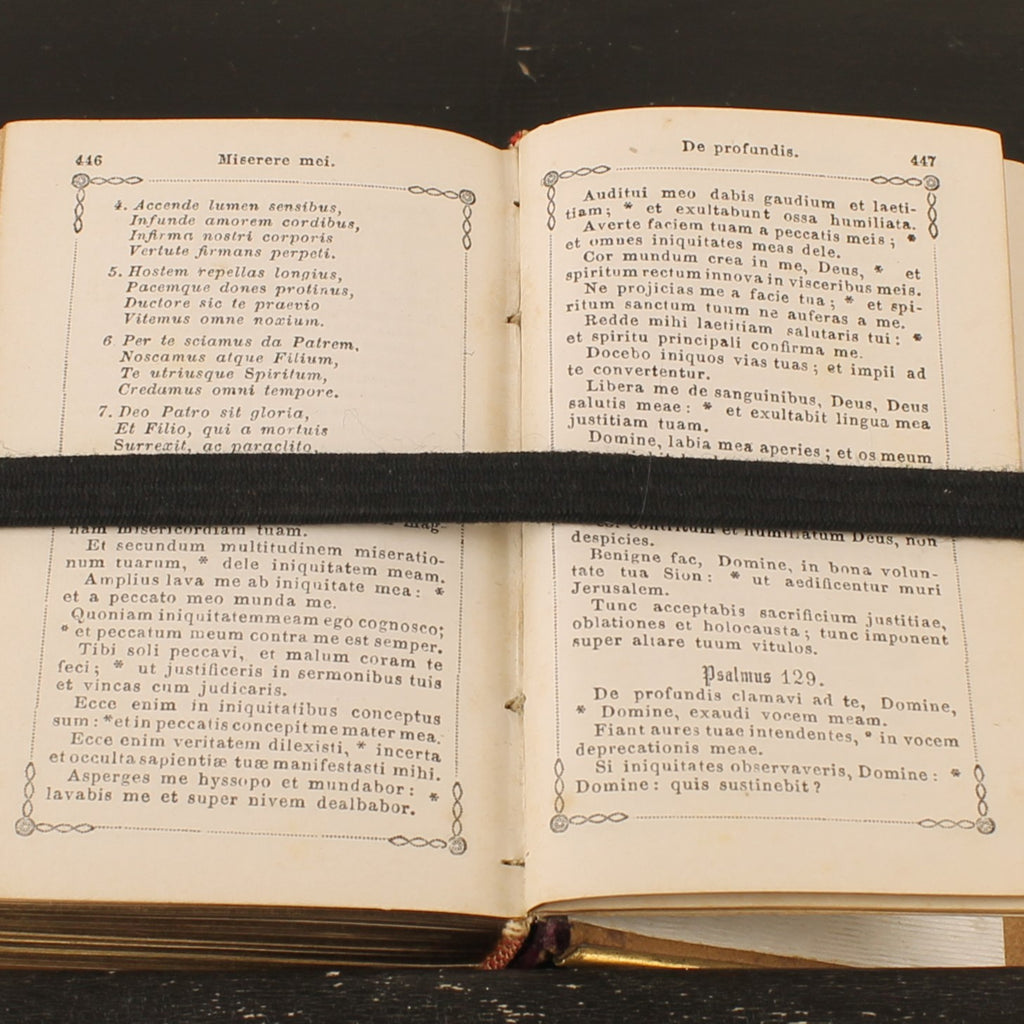 446
Miserere mei.
4. Accende lumen sensibus,
Infunde amorem cordibus,
Infirma nostri corporis
Vertute firmans perpeti.
5. Hostem repellas longius,
Pacemque dones protinus,
Ductore sic te praevio
Vitemus omne noxium.
6. Per te sciamus da Patrem,
Noscamus atque Filium,
Te utriusque Spiritum,
Credamus omni tempore.
7. Deo Patro sit gloria,
Et Filio, qui a mortuis
Surrexit, ac paraclito,
mag-
nam misericordiam tuam.
Et secundum multitudinem miseratio-
num tuarum, * dele iniquitatem meam.
Amplius lava me ab iniquitate mea: *
et a peccato meo munda me.
Quoniam iniquitatemmeam ego cognosco;
* et peccatum meum contra me est semper.
Tibi soli peccavi, et malum coram te
feci; * ut justificeris in sermonibus tuis
et vincas cum judicaris.
Ecce enim in iniquitatibus conceptus
sum: * et in peccatis concepit me mater mea.
Ecce enim veritatem dilexisti, * incerta
et occulta sapientiæ tuæ manifestasti mihi.
Asperges me hyssopo et mundabor: *
lavabis me et super nivem dealbabor.
De profundis.
447
Auditui meo dabis gaudium et laeti-
tiam; * et exultabunt ossa humiliata.
Averte faciem tuam a peccatis meis; *
et omnes iniquitates meas dele.
Cor mundum crea in me, Deus, * et
spiritum rectum innova in visceribus meis.
Ne projicias me a facie tua; * et spi-
ritum sanctum tuum ne auferas a me.
Redde mihi laetitiam salutaris tui: *
et spiritu principali confirma me.
Docebo iniquos vias tuas; et impii ad
te convertentur.
Libera me de sanguinibus, Deus, Deus
salutis meae: * et exultabit lingua mea
justitiam tuam.
Domine, labia mea aperies; et os meum
contritum et humiliatum Deus, non
despicies.
Benigne fac, Domine, in bona volun-
tate tua Sion: * ut aedificentur muri
Jerusalem.
Tunc acceptabis sacrificium justitiae,
oblationes et holocausta; tunc imponent
super altare tuum vitulos.
Psalmus 129.
De profundis clamavi ad te, Domine,
* Domine, exaudi vocem meam.
Fiant aures tuae intendentes, * in vocem
deprecationis meae.
Si iniquitates observaveris, Domine: *
Domine: quis sustinebit?